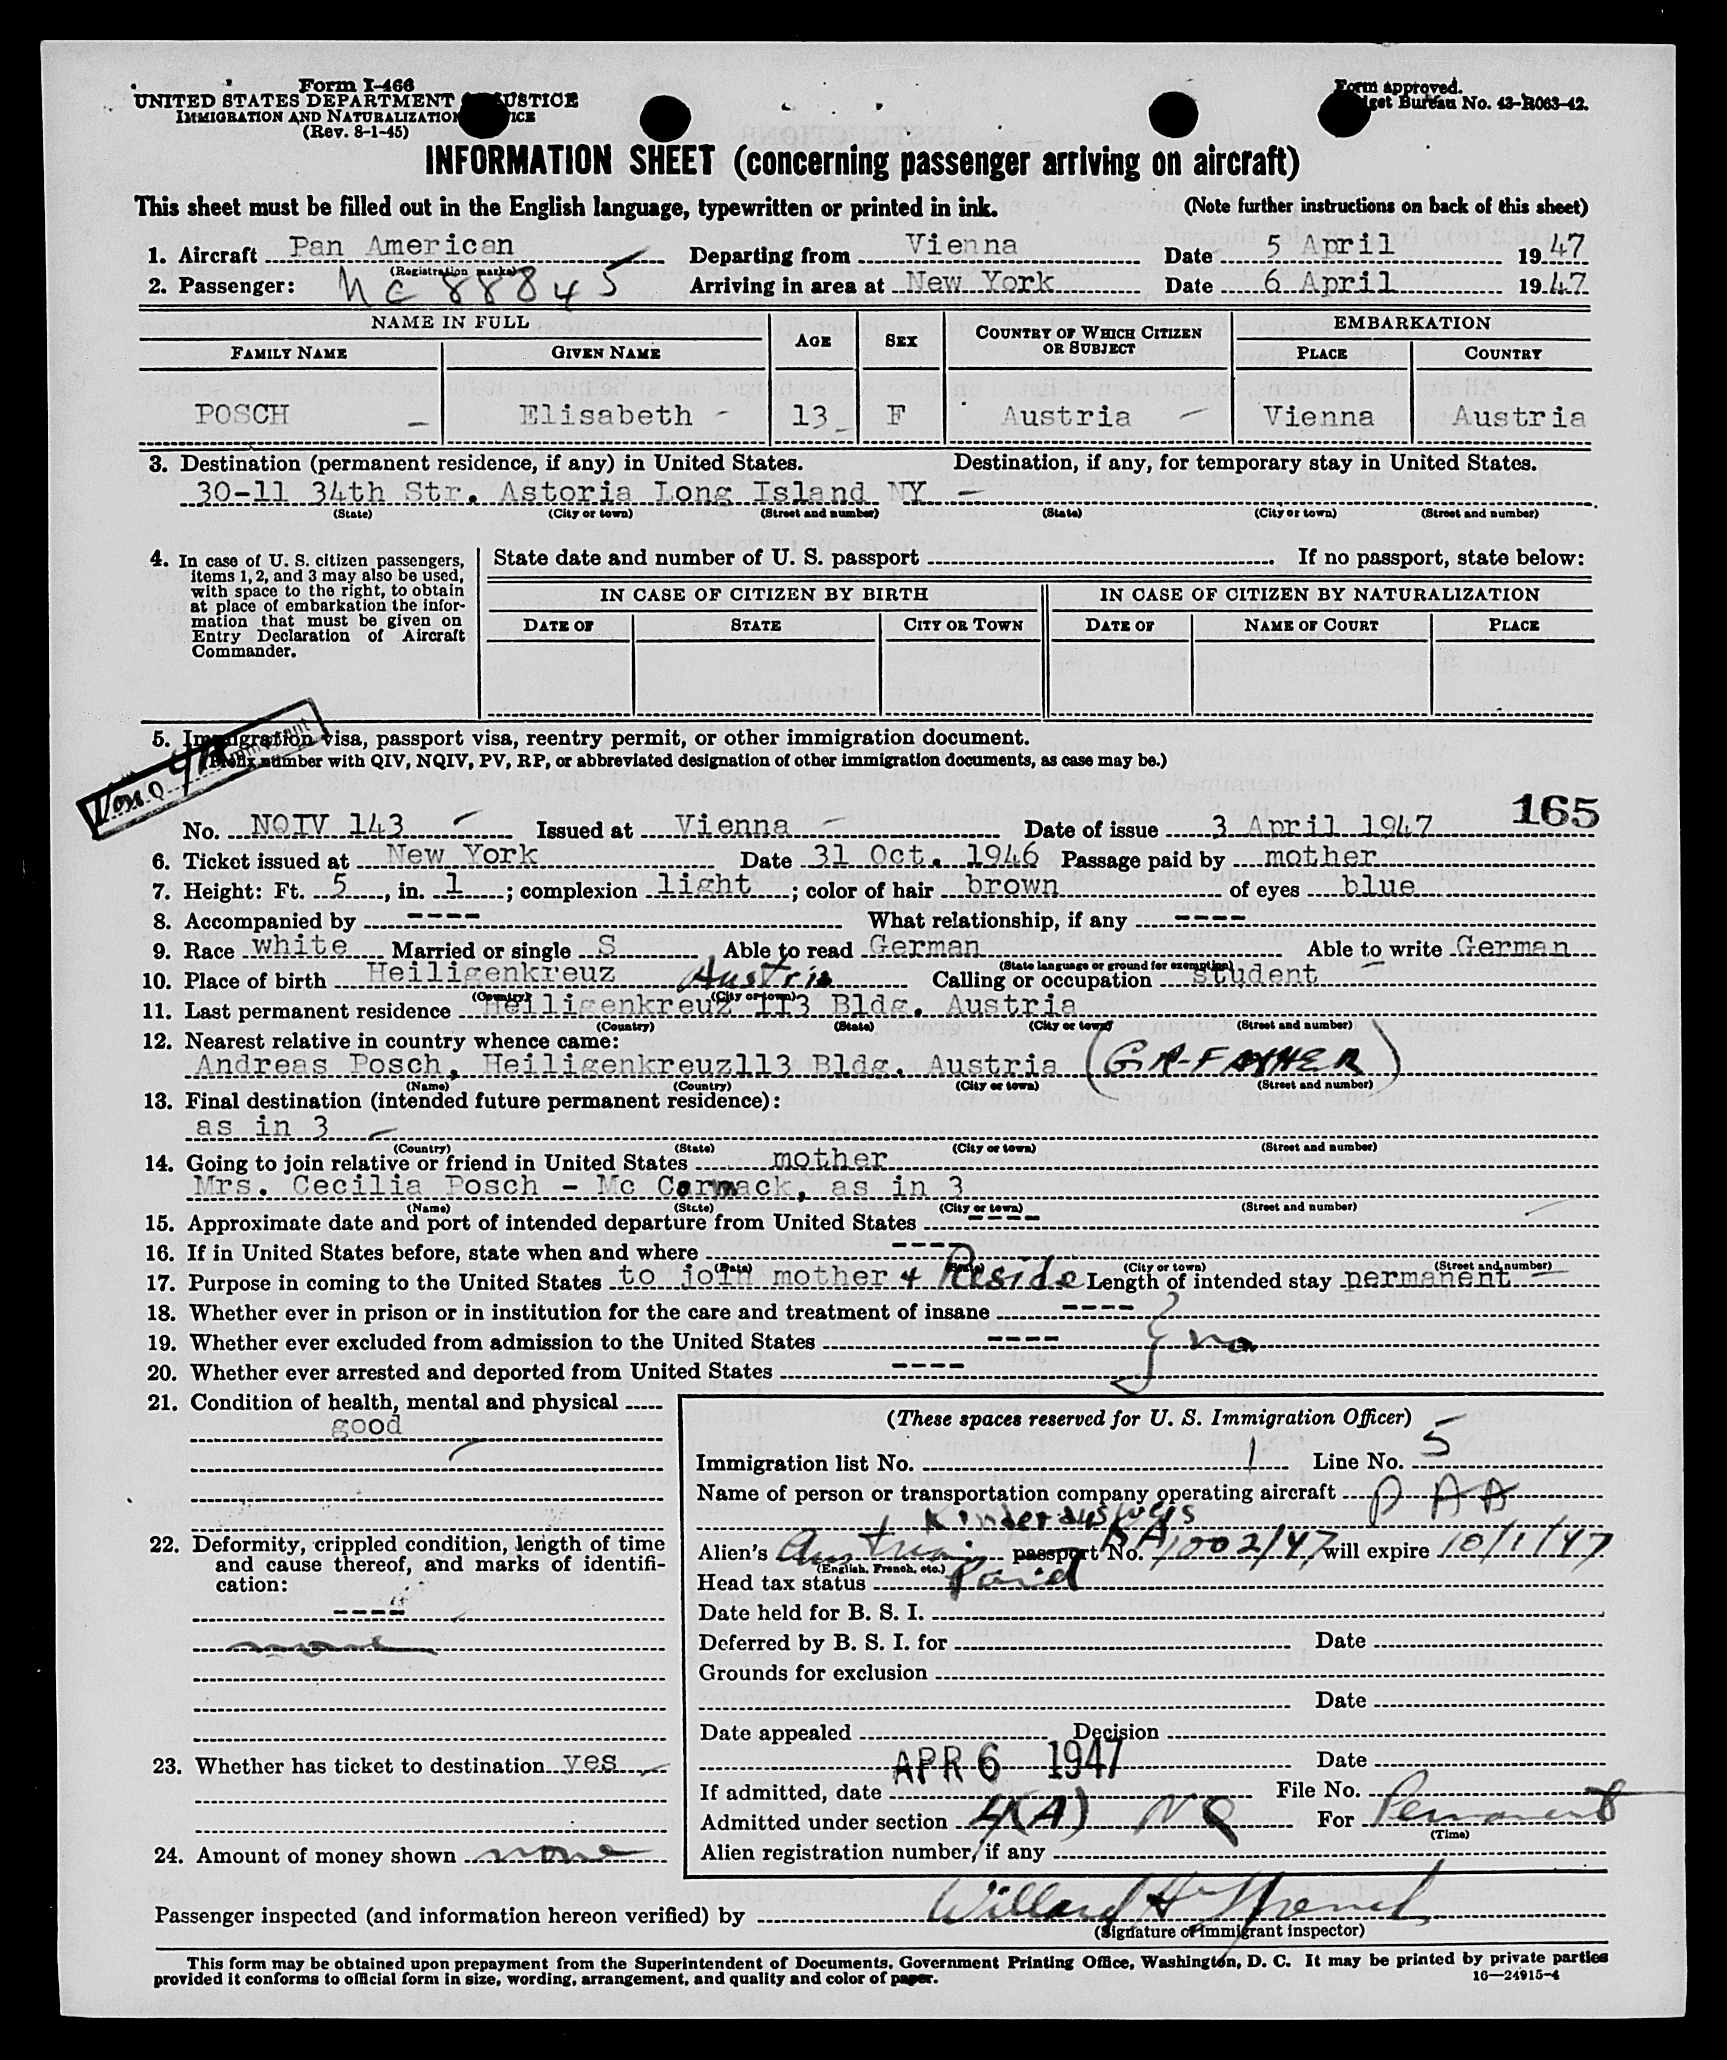 Form I-466
UNITED STATES DEPARTMENT JUSTICE
IMMIGRATION AND NATURALIZATION
(Rev. 8-1-45)
Form approved.
Budget Bureau No. 43-R063-42.
INFORMATION SHEET (concerning passenger arriving on aircraft)
This sheet must be filled out in the English language, typewritten or printed in ink. (Note further instructions on back of this sheet)
1. Aircraft Pan American Departing from Vienna Date 5 April 1947
(Registration marks)
2. Passenger: NC 88845 Arriving in area at New York Date 6 April 1947
NAME IN FULL AGE SEX COUNTRY OF WHICH CITIZEN OR SUBJECT EMBARKATION
FAMILY NAME GIVEN NAME PLACE COUNTRY
POSCH - Elisabeth - 13 F Austria - Vienna Austria
3. Destination (permanent residence, if any) in United States. Destination, if any, for temporary stay in United States.
30-11 34th Str. Astoria Long Island NY -
(State) (City or town) (Street and number) (State) (City or town) (Street and number)
4. In case of U. S. citizen passengers, items 1, 2, and 3 may also be used, with space to the right, to obtain at place of embarkation the information that must be given on Entry Declaration of Aircraft Commander.
State date and number of U. S. passport If no passport, state below:
IN CASE OF CITIZEN BY BIRTH IN CASE OF CITIZEN BY NATURALIZATION
DATE OF STATE CITY OR TOWN DATE OF NAME OF COURT PLACE
5. Immigration visa, passport visa, reentry permit, or other immigration document.
(Prefix number with QIV, NQIV, PV, RP, or abbreviated designation of other immigration documents, as case may be.)
165
No. NQIV 143 Issued at Vienna Date of issue 3 April 1947
6. Ticket issued at New York Date 31 Oct. 1946 Passage paid by mother
7. Height: Ft. 5, in. 1; complexion light; color of hair brown of eyes blue
8. Accompanied by ---- What relationship, if any ----
9. Race white Married or single S Able to read German Able to write German
(State language or ground for exemption)
10. Place of birth Heiligenkreuz Austria Calling or occupation student
(Country) (City or town)
11. Last permanent residence Heiligenkreuz 113 Bldg. Austria
(Country) (State) (City or town) (Street and number)
12. Nearest relative in country whence came:
Andreas Posch, Heiligenkreuz113 Bldg. Austria (GR-FATHER)
(Name) (Country) (City or town) (Street and number)
13. Final destination (intended future permanent residence):
as in 3
(Country) (State) (City or town) (Street and number)
14. Going to join relative or friend in United States mother
Mrs. Cecilia Posch - Mc Cormack, as in 3
(Name) (State) (City or town) (Street and number)
15. Approximate date and port of intended departure from United States ----
16. If in United States before, state when and where ----
(Date) (State) (City or town) (Street and number)
17. Purpose in coming to the United States to join mother + Reside Length of intended stay permanent
18. Whether ever in prison or in institution for the care and treatment of insane ----
19. Whether ever excluded from admission to the United States ---- no
20. Whether ever arrested and deported from United States ----
21. Condition of health, mental and physical
good
22. Deformity, crippled condition, length of time and cause thereof, and marks of identification:
----
none
23. Whether has ticket to destination yes
24. Amount of money shown none
(These spaces reserved for U. S. Immigration Officer)
Immigration list No. 1 Line No. 5
Name of person or transportation company operating aircraft PAA
Kinderausweis
Alien's Austrian passport No. KA 1002/47 will expire 10/1/47
(English, French, etc.)
Head tax status Paid
Date held for B. S. I.
Deferred by B. S. I. for Date
Grounds for exclusion
Date
Date appealed Decision
Date
APR 6 1947
If admitted, date File No.
Admitted under section 4(A) NQ For Permanent
(Time)
Alien registration number, if any
Passenger inspected (and information hereon verified) by Willard H
(Signature of immigrant inspector)
This form may be obtained upon prepayment from the Superintendent of Documents, Government Printing Office, Washington, D. C. It may be printed by private parties
provided it conforms to official form in size, wording, arrangement, and quality and color of paper. 16—24915-4